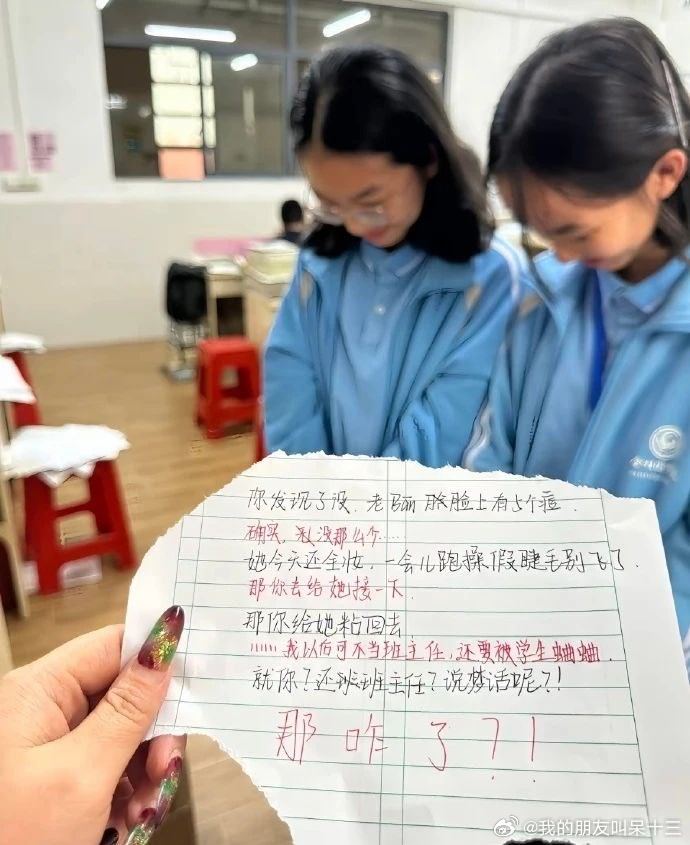 你发现了没、老师脸脸上有5个痘.
确实，我没那么个……
她今天还全妆，一会儿跑操假睫毛别飞了.
那你去给她接一下.
那你给她粘回去
……我以后可不当班主任，还要被学生蛐蛐.
就你？还班班主任？说梦话呢？!
那咋了？！
@我的朋友叫呆十三